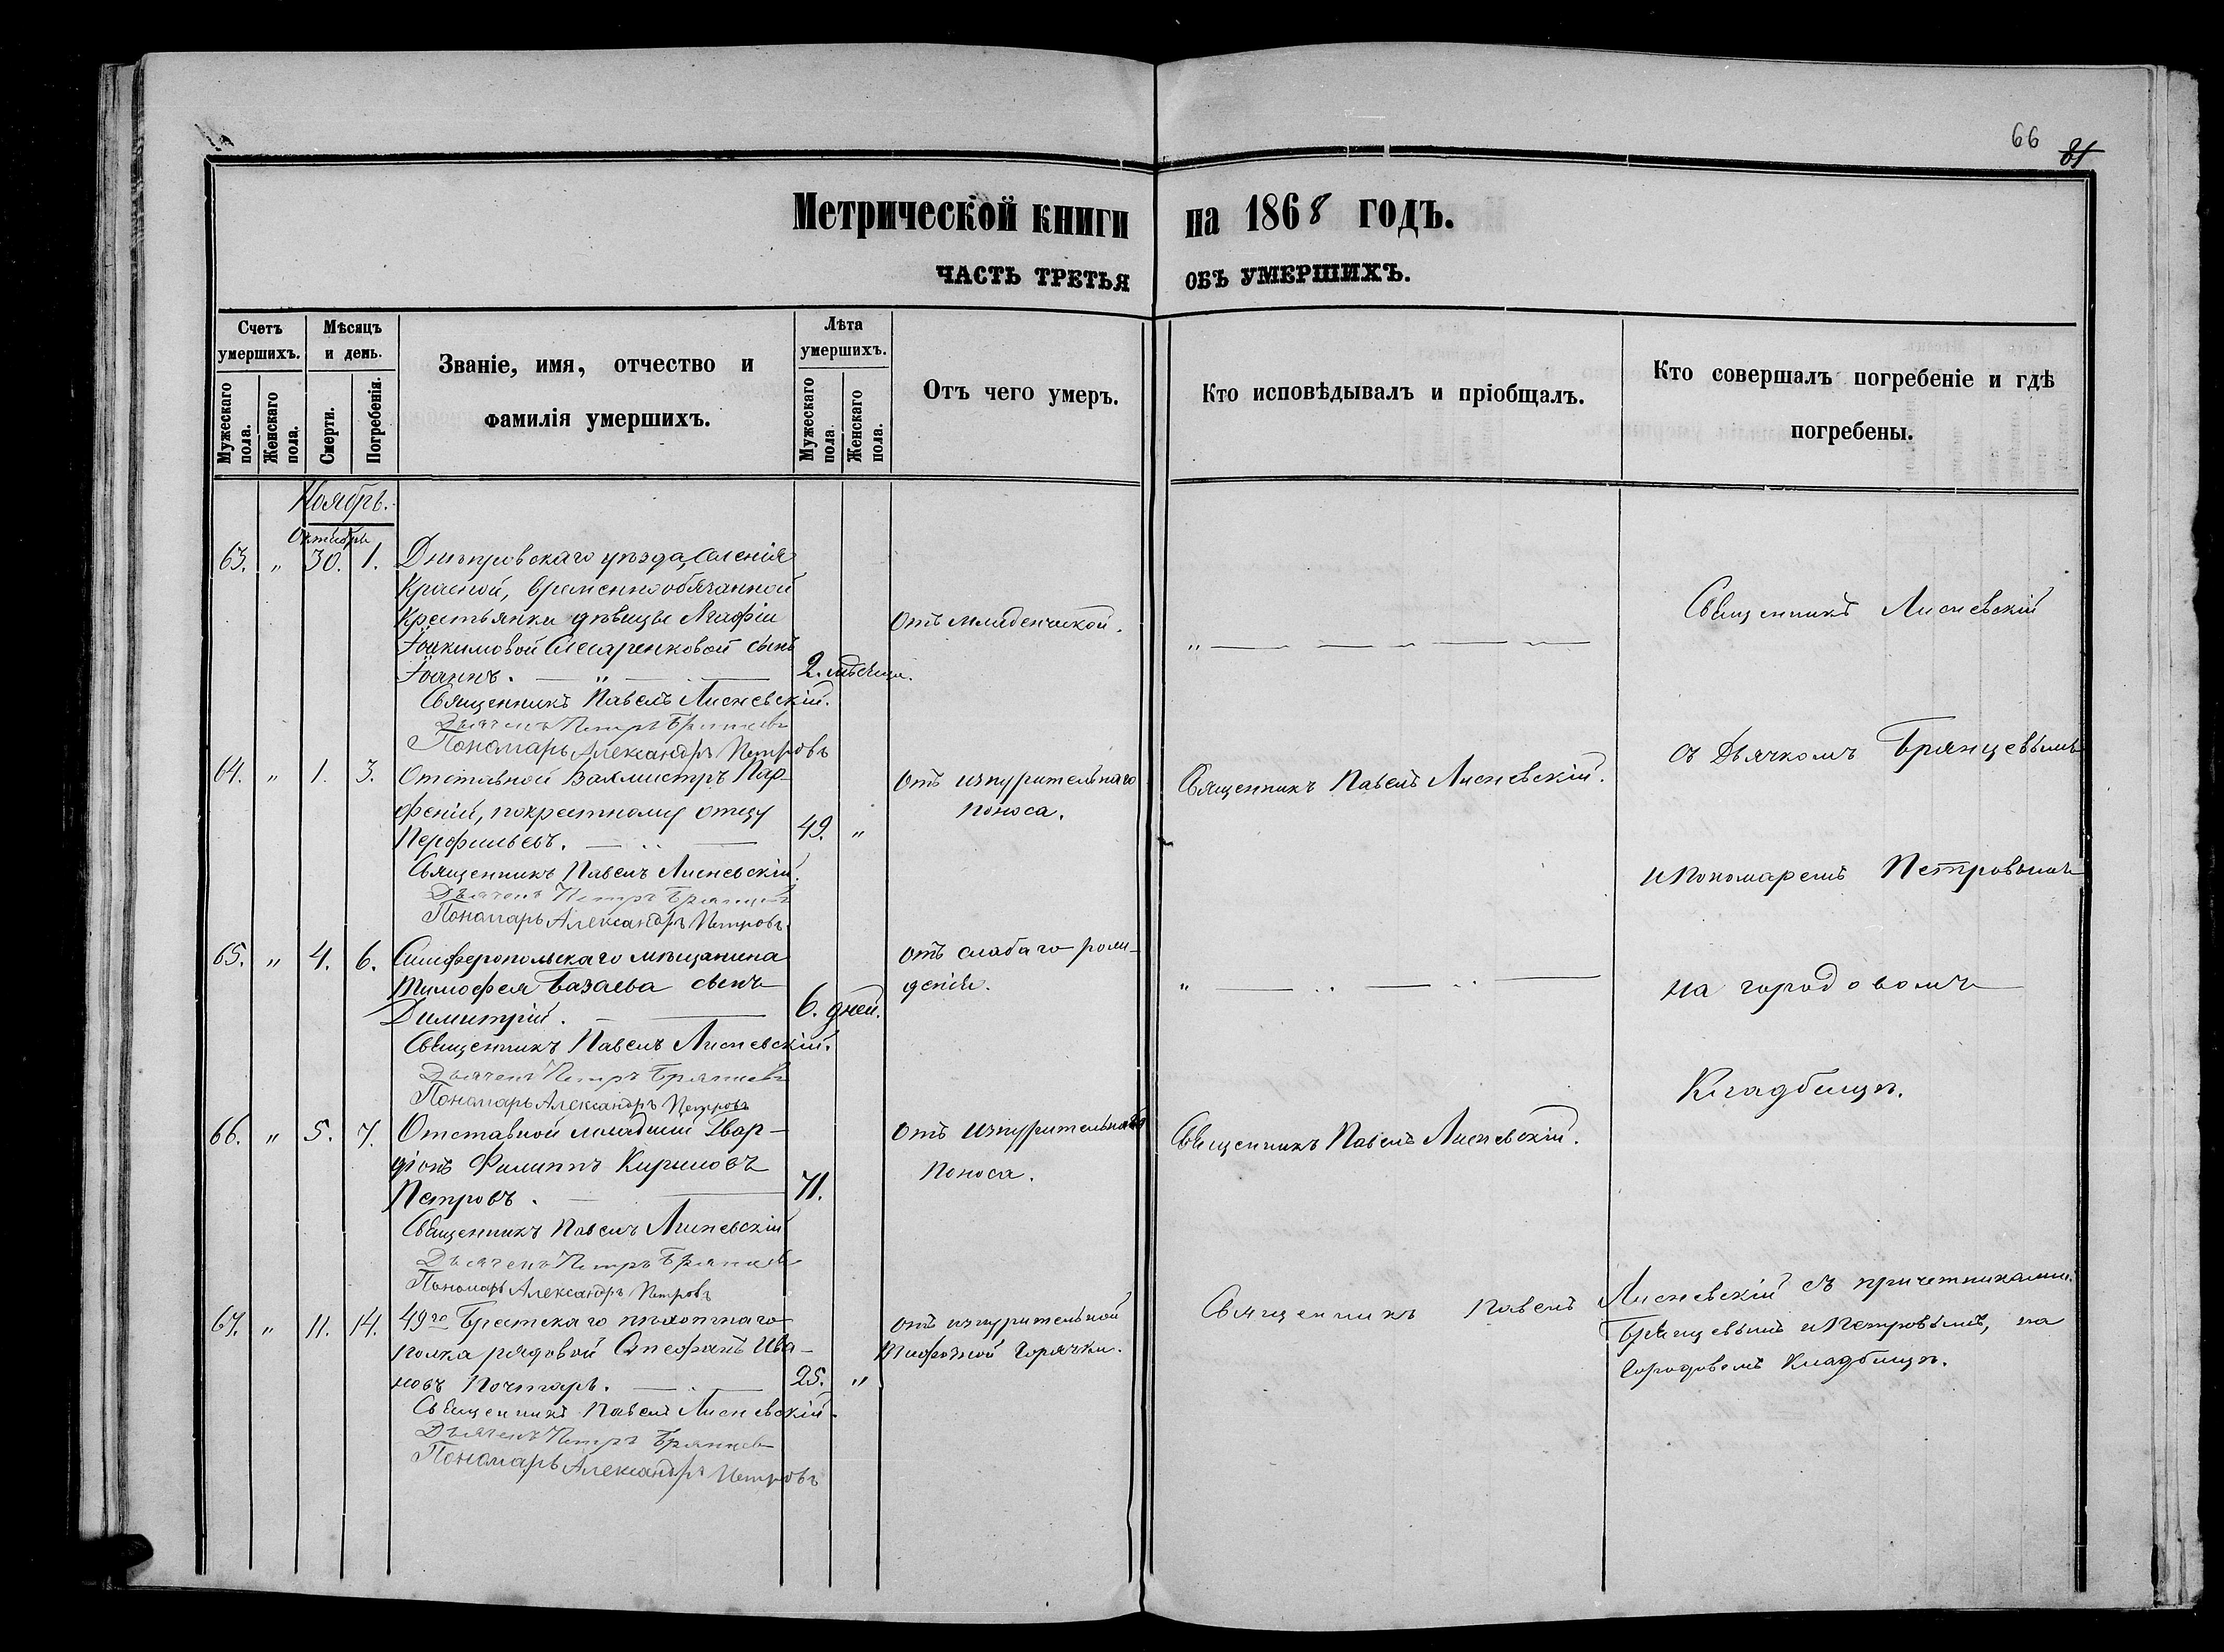 66 81
Метрической книги на 1868 годъ.
ЧАСТЬ ТРЕТЬЯ ОБЪ УМЕРШИХЪ.
Счетъ умершихъ.
Мужескаго пола.
Женскаго пола.
Мѣсяцъ и день.
Смерти.
Погребенія.
Званіе, имя, отчество и
фамилія умершихъ.
Лѣта умершихъ.
Мужескаго пола
Женскаго пола.
Отъ чего умеръ.
Кто исповѣдывалъ и пріобщалъ.
Кто совершалъ погребеніе и гдѣ
погребены.
Ноябрь.
Октябрь
63. " 30. 1. Днѣпровскаго уѣзда, селенія
Краской, временнообязанной
Крестьянки дѣвицы Агафіи
Іоакимовой Слесаренковой сынъ
Іоаннъ. 2. мѣсяца.
отъ младенческой.
Священникъ Павелъ Лисневскій.
Дьячекъ Петръ Брянцевъ
Пономарь Александръ Петровъ
64. " 1. 3. Отставной Вахмистръ Пар-
феній, покрестному отцу
Перфильевъ. 49. "
отъ изнурительнаго
поноса.
Священникъ Павелъ Лисневскій.
Священникъ Павелъ Лисневскій.
Дьячекъ Петръ Брянцевъ
Пономарь Александръ Петровъ.
65. " 4. 6. Симферопольскаго мѣщанина
Тимофея Базаева сынъ
Димитрій. 6. дней.
отъ слабаго рож-
денія.
Священникъ Павелъ Лисневскій.
Дьячекъ Петръ Брянцевъ
Пономарь Александръ Петровъ
66. " 5. 7. Отставной младшій Вар-
діонъ Филиппъ Кириловъ
Петровъ. 71.
отъ изнурительнаго
поноса.
Священникъ Павелъ Лисневскій.
Священникъ Павелъ Лисневскій
Дьячекъ Петръ Брянцевъ
Пономарь Александръ Петровъ
67. " 11. 14. 49го Брестскаго пѣхотнаго
полка рядовой Стефанъ Ива-
новъ Почтарь. 25. "
отъ изнурительной
тифозной горячки.
Священникъ Павелъ
Священникъ Павелъ Лисневскій.
Дьячекъ Петръ Брянцевъ
Пономарь Александръ Петровъ
Священникъ Лисневскій
съ Дьячкомъ Брянцевымъ
и Пономаремъ Петровымъ
на городовомъ
Кладбищѣ.
Лисневскій съ причетниками
Брянцевымъ и Петровымъ, на
городовомъ Кладбищѣ.